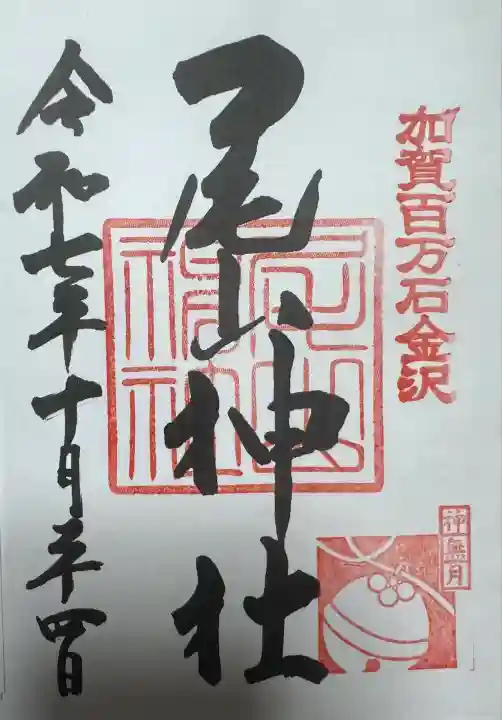 加賀百万石金沢
神無月
尾山神社
尾山神社
令和七年十月二十四日